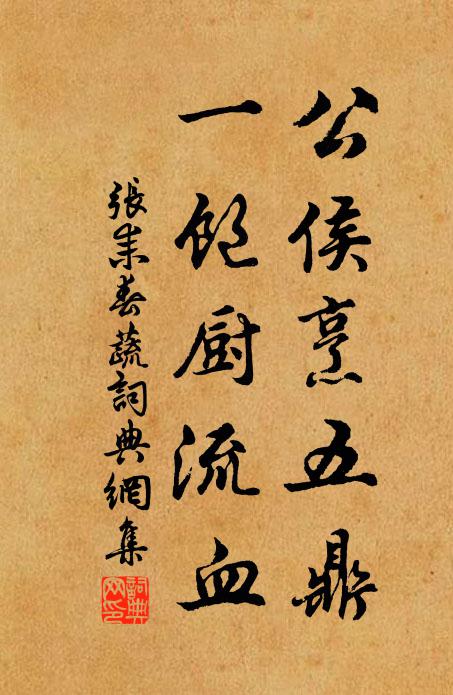 公侯烹五鼎
一飽厨流血
張耒春蔬詞典網集
詞典网印